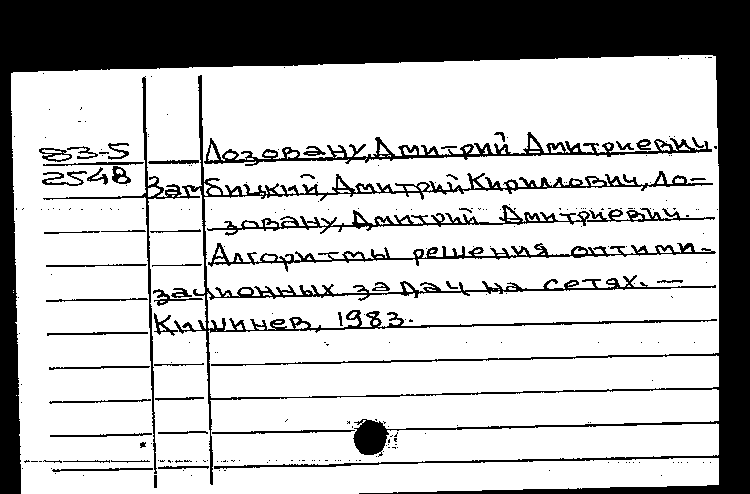 83-5 Лозовану, Дмитрий Дмитриевич.
2548 Замбицкий, Дмитрий Кириллович, Ло=
зовану, Дмитрий Дмитриевич.
Алгоритмы решения оптими-
зационных задач на сетях. —
Кишинев, 1983.